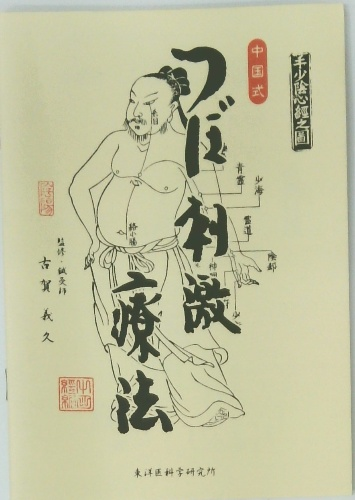 手少陰心經之圖
中国式
つぼ刺激療法
青靈
少海
靈道
陰郄
絡小腸
監修・鍼灸師
古賀義久
東洋医科学研究所